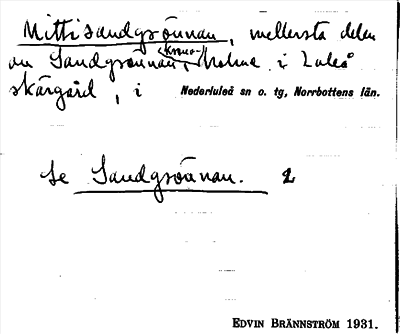 Mittisandgrönnan, mellersta delen
av Sandgrönnan, Krono-holme i Luleå
skärgård, i Nederluleå sn o. tg, Norrbottens län.
Se Sandgrönnan. 2
EDVIN BRÄNNSTRÖM 1931.